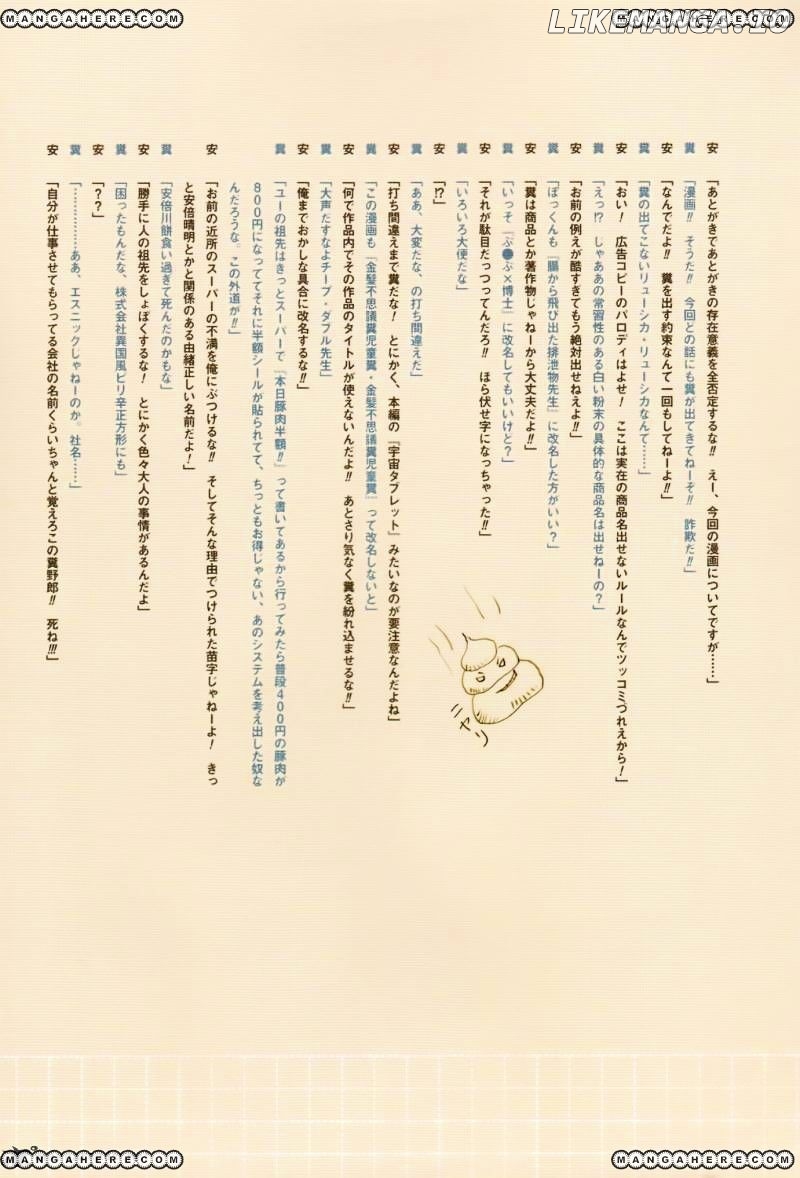 MANGAHERE.COM
LIKEMANGA.IO
MANGAHERE.COM
安「あとがきであとがきの存在意義を全否定するな!! えー、今回の漫画についてですが……」
糞「漫画!! そうだ!! 今回どの話にも糞が出てきてねーぞ!! 詐欺だ!!」
安「なんでだよ!! 糞を出す約束なんて一回もしてねーよ!!」
糞「糞の出てこないリューシカ・リューシカなんて……」
安「おい! 広告コピーのパロディはよせ! ここは実在の商品名出せないルールなんでツッコミづれえから!」
糞「えっ!? じゃああの常習性のある白い粉末の具体的な商品名は出せねーの?」
安「お前の例えが酷すぎてもう絶対出せねえよ!!」
糞「ぼっくんも『腸から飛び出た排泄物先生』に改名した方がいい?」
安「糞は商品とか著作物じゃねーから大丈夫だよ!!」
糞「いっそ『ぷ●ぷ×博士』に改名してもいいけど?」
安「それが駄目だっつってんだろ!! ほら伏せ字になっちゃった!!」
糞「いろいろ大便だな」
安「!?」
糞「ああ、大変だな、の打ち間違えだ」
安「打ち間違えまで糞だな! とにかく、本編の『宇宙タブレット』みたいなのが要注意なんだよね」
糞「この漫画も『金髪不思議糞児童糞・金髪不思議糞児童糞』って改名しないと」
安「何で作品内でその作品のタイトルが使えないんだよ!! あとさり気なく糞を紛れ込ませるな!!」
糞「大声だすなよチープ・ダブル先生」
安「俺までおかしな具合に改名するな!!」
糞「ユーの祖先はきっとスーパーで『本日豚肉半額!!』って書いてあるから行ってみたら普段400円の豚肉が
800円になっててそれに半額シールが貼られてて、ちっともお得じゃない、あのシステムを考え出した奴な
んだろうな。この外道が!!」
安「お前の近所のスーパーの不満を俺にぶつけるな!! そしてそんな理由でつけられた苗字じゃねーよ! きっ
と安倍晴明とかと関係のある由緒正しい名前だよ!」
糞「安倍川餅食い過ぎて死んだのかもな」
安「勝手に人の祖先をしょぼくするな! とにかく色々大人の事情があるんだよ」
糞「困ったもんだな、株式会社異国風ピリ辛正方形にも」
安「??」
糞「……………ああ、エスニックじゃねーのか。社名……」
安「自分が仕事させてもらってる会社の名前くらいちゃんと覚えろこの糞野郎!! 死ね!!!」
ニヤリ
MANGAHERE.COM
MANGAHERE.COM